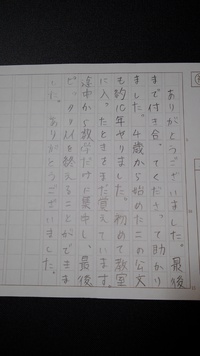 ありがとうございました。最後
まで付き合ってくださって助かり
ました。4歳から始めたこの公文
も約10年やりました。初めて教室
に入ったときをまだ覚えています。
途中から数学だけに集中し、最後
で、タタ材を終えることができま
した。ありがとうございました。